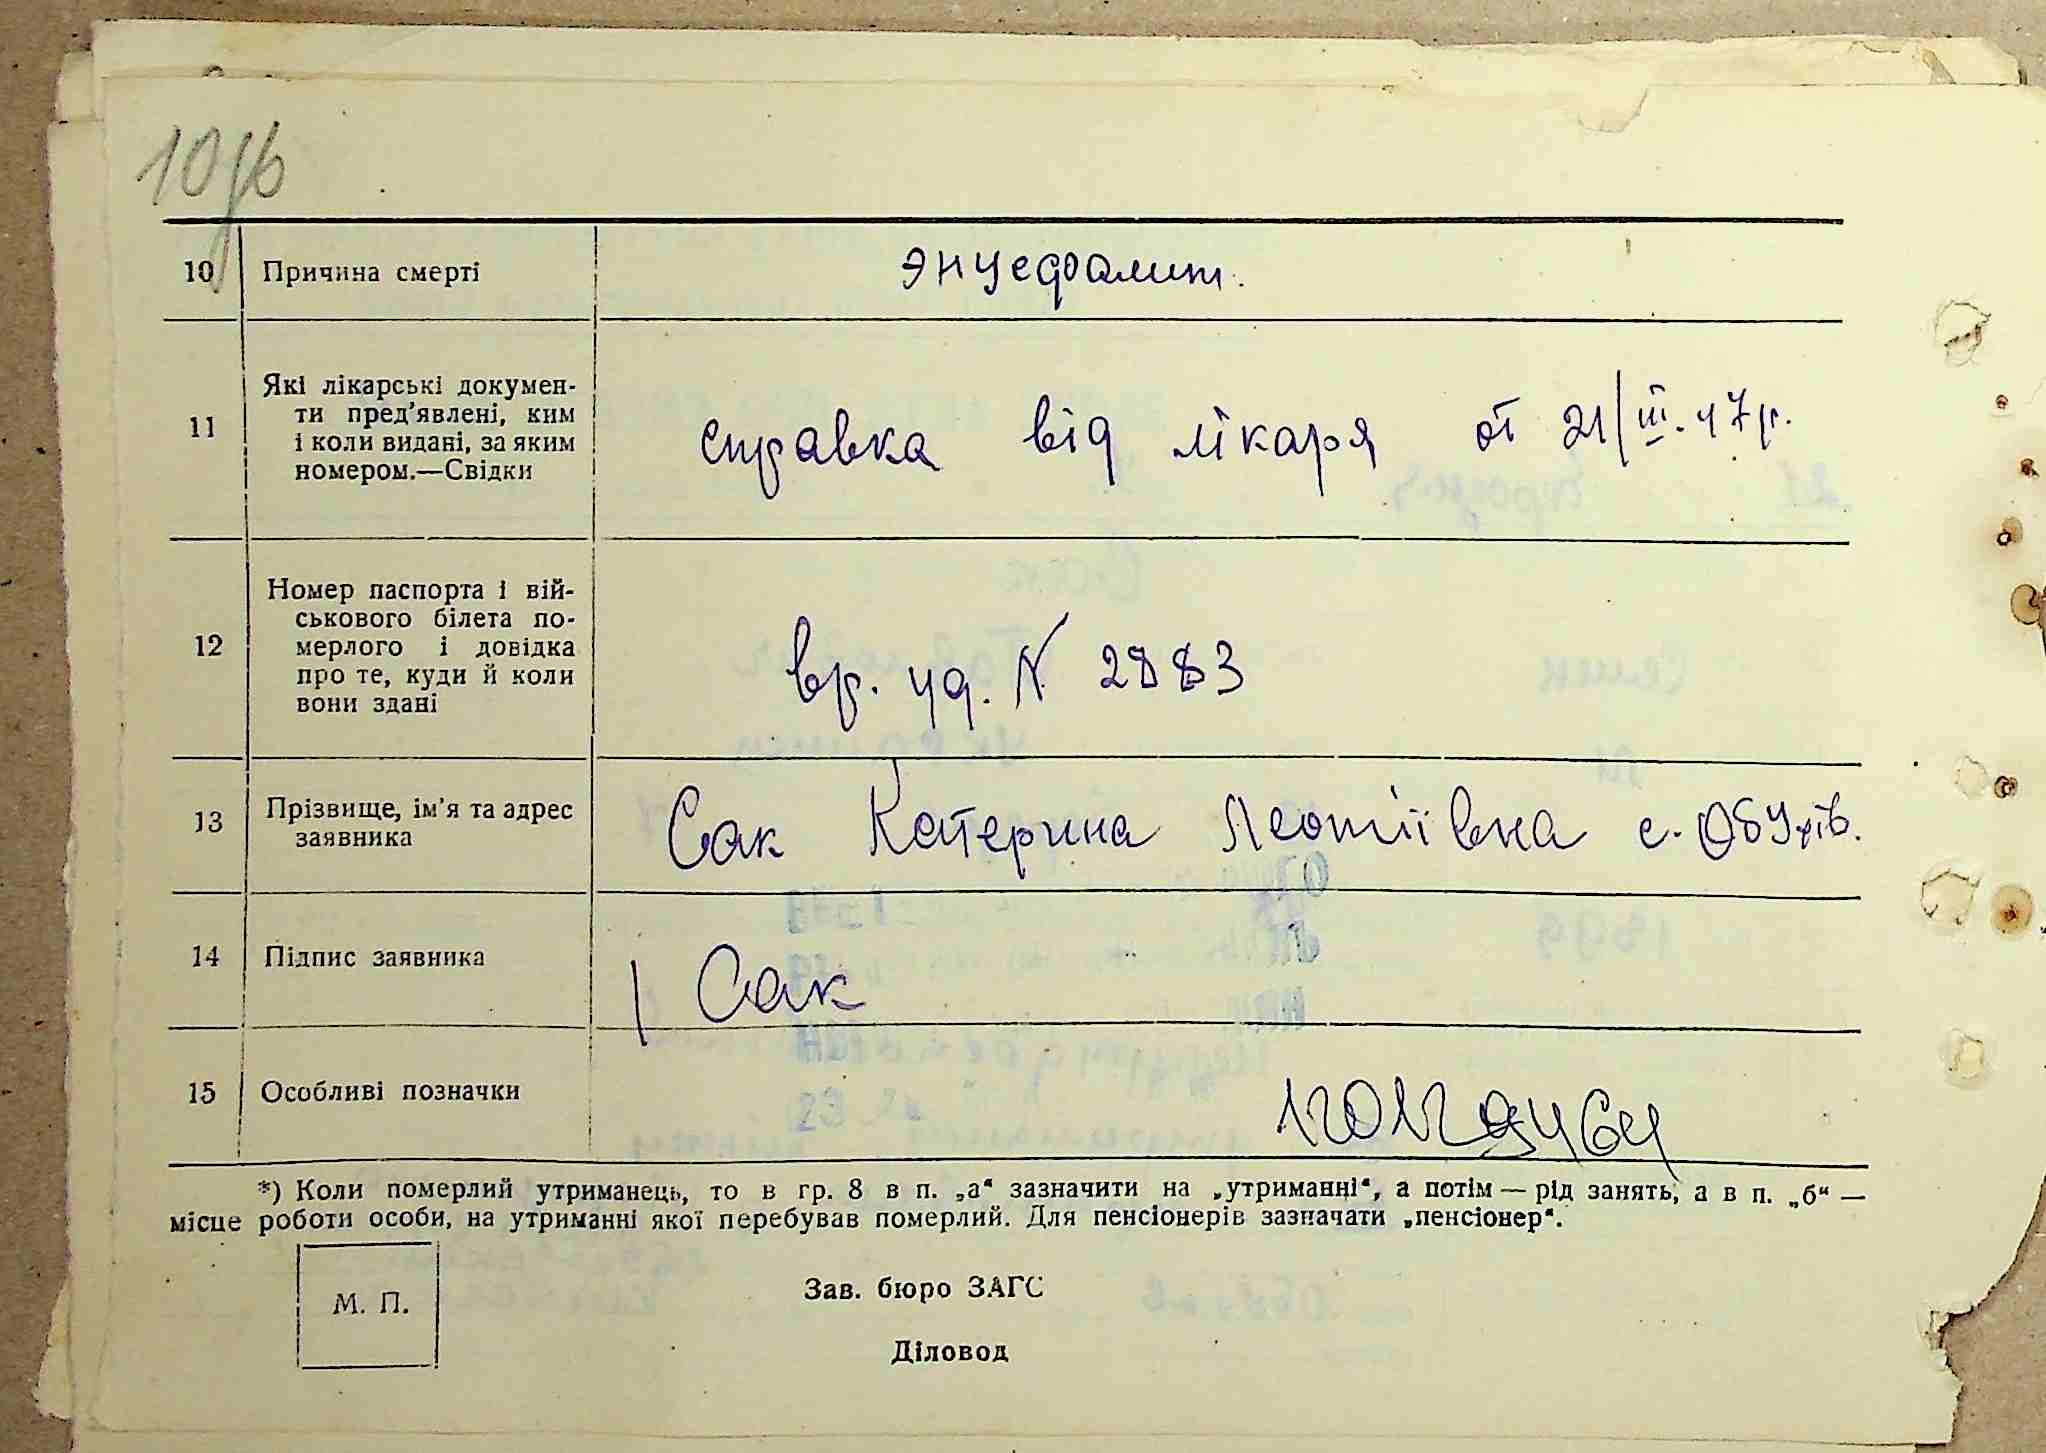 10
10 Причина смерті энцефалит.
11 Які лікарські докумен-
ти пред'явлені, ким
і коли видані, за яким
номером.—Свідки
справка від лікаря от 21/III.47р.
12 Номер паспорта і вій-
ськового білета по-
мерлого і довідка
про те, куди й коли
вони здані
вр. уд. N 2883
13 Прізвище, ім'я та адрес
заявника
Сак Катерина Леотіївна с. Обухів.
14 Підпис заявника Сак
15 Особливі позначки
*) Коли померлий утриманець, то в гр. 8 в п. „а“ зазначити на „утриманні“, а потім — рід занять, а в п. „б“ —
місце роботи особи, на утриманні якої перебував померлий. Для пенсіонерів зазначати „пенсіонер“.
М. П.
Зав. бюро ЗАГС
Діловод